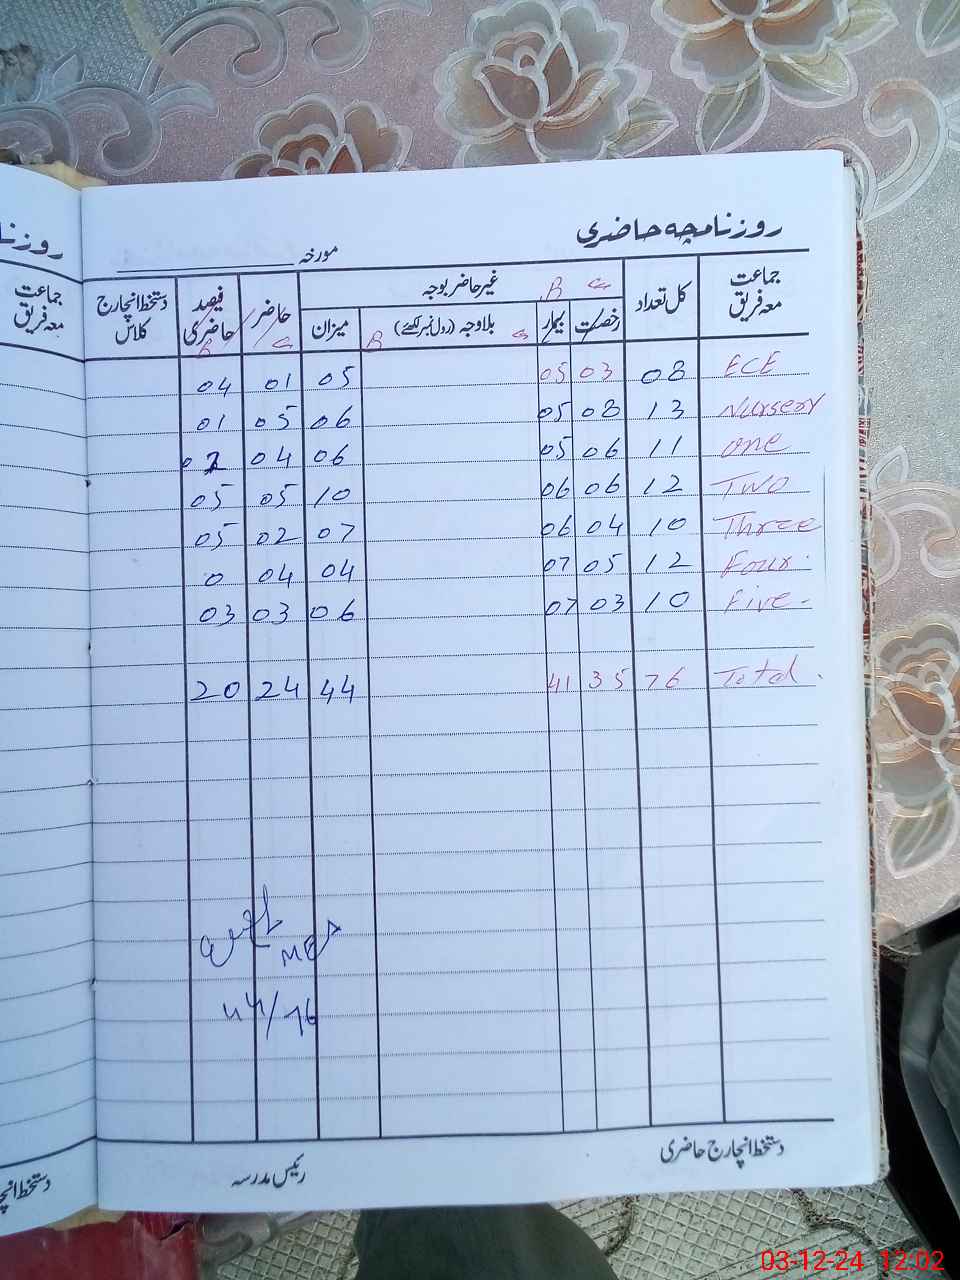 روزنامچہ حاضری
مورخہ
جماعت معہ فریق کل تعداد غیر حاضر بوجہ حاضر فیصد حاضری دستخط انچارج کلاس
B G
رخصت بیمار بلاوجہ (رول نمبر لکھئے) میزان
G B G B
ECE 08 03 05 05 01 04
Nursery 13 08 05 06 05 01
One 11 06 05 06 04 02
Two 12 06 06 10 05 05
Three 10 04 06 07 02 05
Four 12 05 07 04 04 0
Five 10 03 07 06 03 03
Total 76 35 41 44 24 20
44/76
دستخط انچارج حاضری
رئیس مدرسہ
روزنا
جماعت معہ فریق
03-12-24 12:02